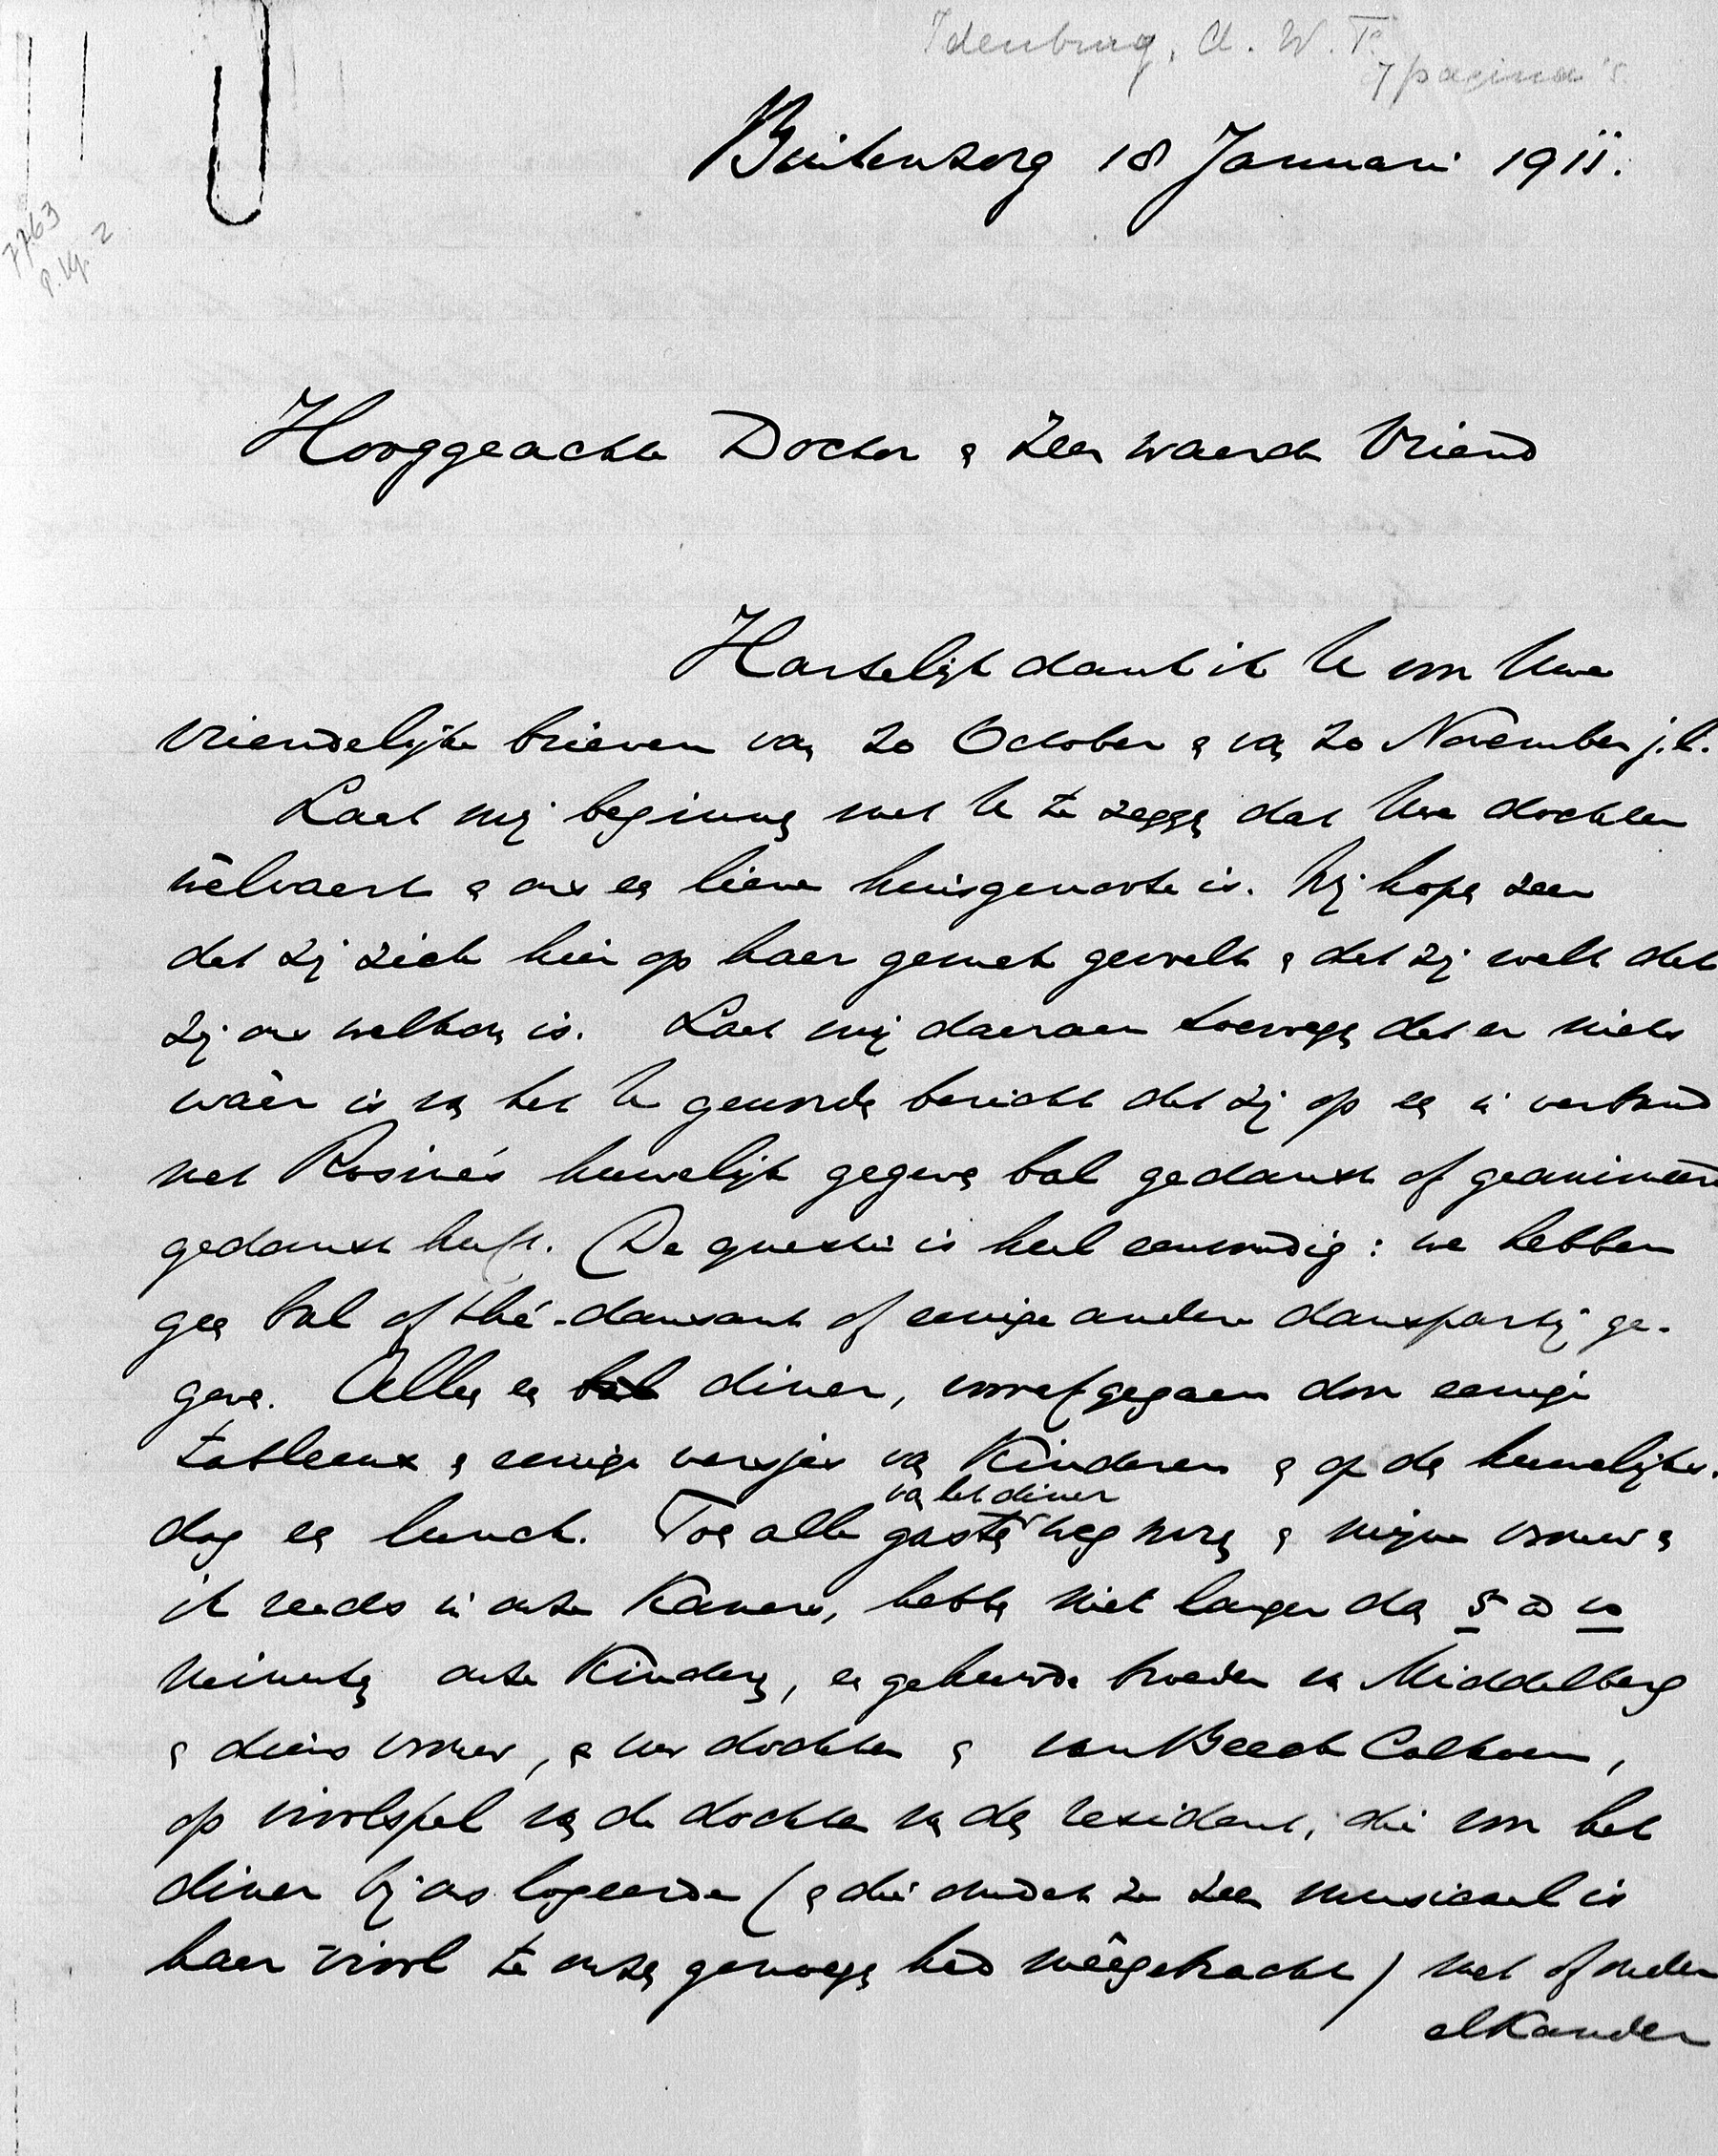 Idenburg, A. W. F.
7 pagina's
7763
P. Kp. 2
Buitenzorg 18 Januari 1911.
Hooggeachte Doctor & zeer waarde Vriend
Hartelijk dank ik U voor Uwe
vriendelijke brieven van 20 October & van 20 November j.l.
Laat mij beginnen met U te zeggen dat Uwe dochter
wèlvaart & ons een lieve huisgenoote is. Wij hopen zeer
dat zij zich hier op haar gemak gevoelt & dat zij voelt dat
zij ons welkom is. Laat mij daaraan toevoegen dat er niets
wáár is van het U geworden bericht dat zij op een in verband
met Rosine's huwelijk gegeven bal gedanst of geanimeerd
gedanst heeft. De questie is heel eenvoudig: we hebben
geen bal of thé-dansant of eenige andere danspartij ge-
geven. Alleen een diner, voorafgegaan door eenige
tableaux & eenige versjes van Kinderen & op den huwelijks-
dag een lunch. Toen alle gasten van het diner weg waren & mijne vrouw &
ik reeds in onze Kamers, hebben niet langer dan 5 à 10
minuten onze Kinderen, een gehuwde broeder van Middelberg
& diens vrouw, & uw dochter & van Beeck Calkoen,
op vioolspel van de dochter van den resident, die voor het
diner bij ons logeerde (& die omdat ze zeer musicaal is
haar viool te onzen genoege had mêegebracht) met of onder
elkander